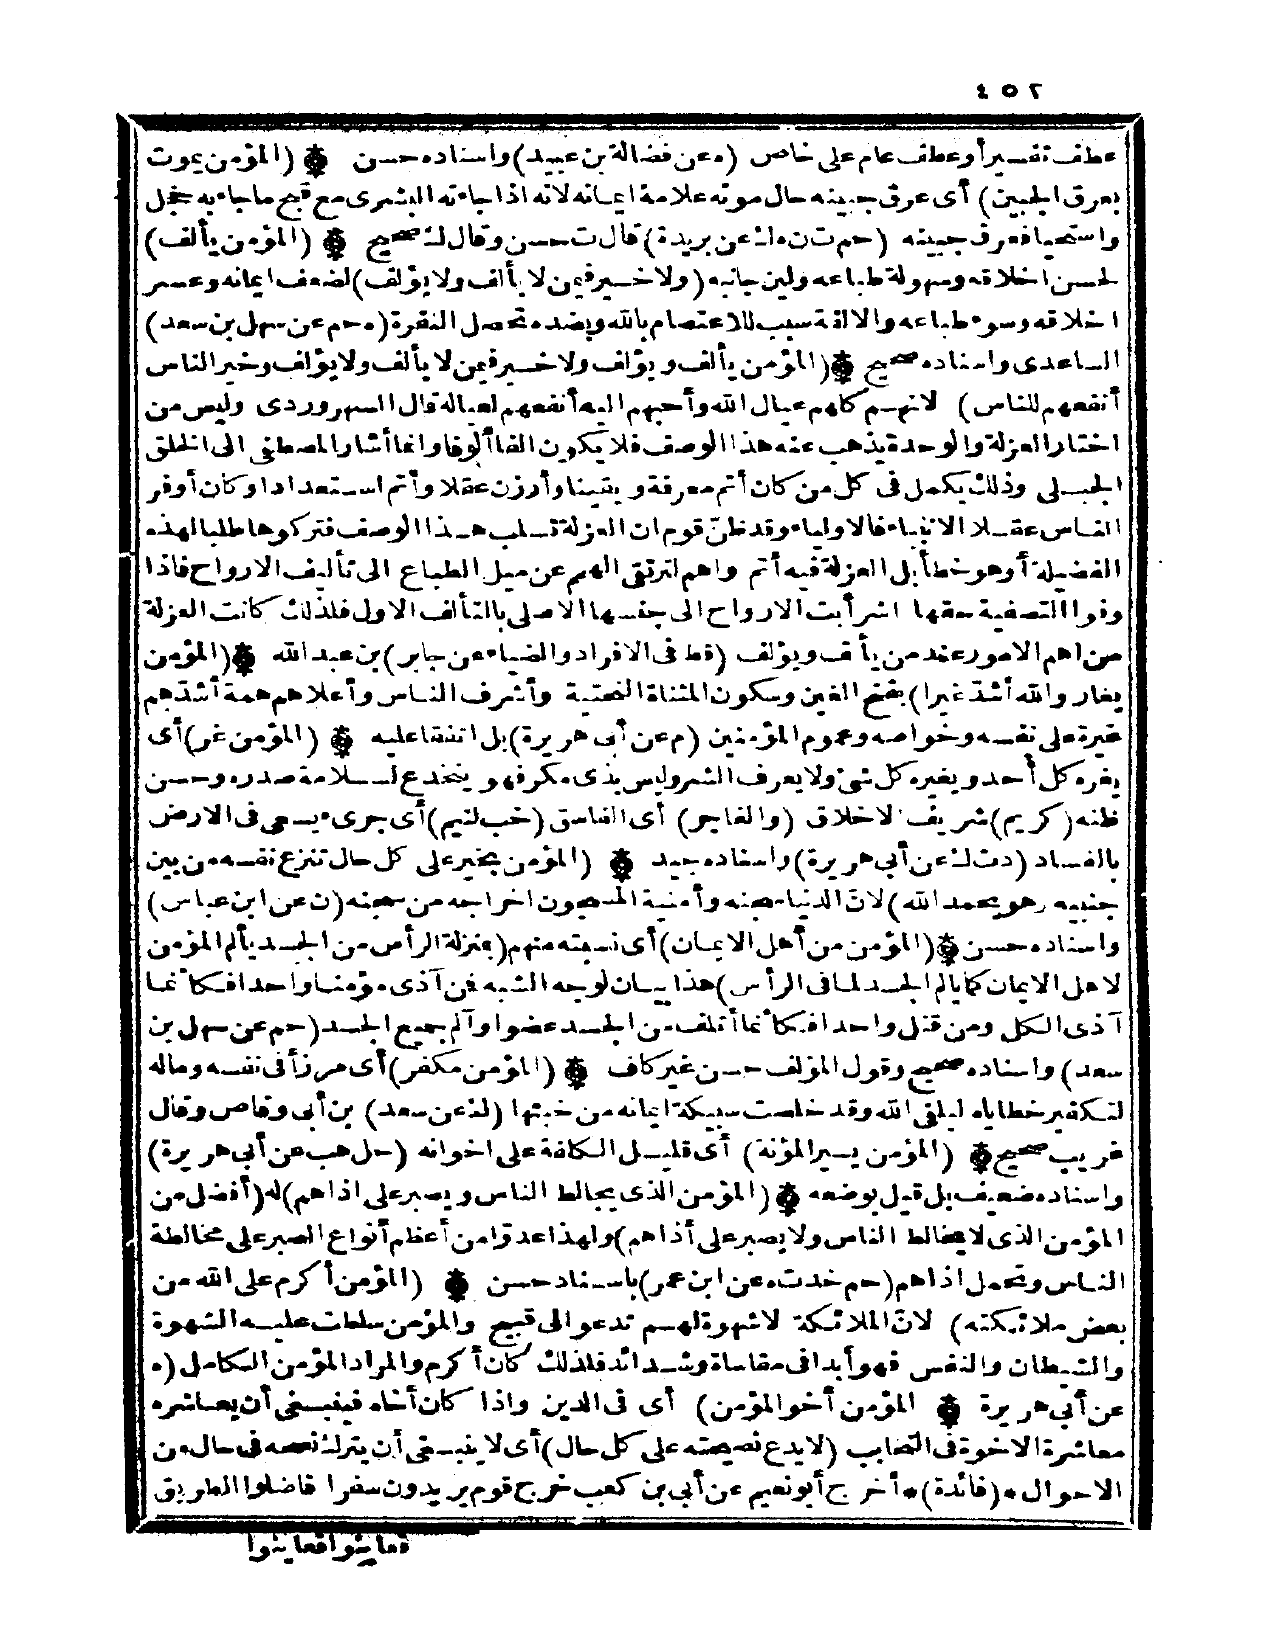 ٤٥٢
عطف تفسير أو عطف عام على خاص (ه عن فضالة بن عبيد) واسناده حسن ۞ (المؤمن يموت
بعرق الجبين) أى عرق جبينه حال موته علامة ايمانه لانه اذا جاءته البشرى مع قبح ما جاء به خجل
واستحيا فعرق جبينه (حم ت ن ه ك عن بريدة) قال ت حسن وقال ك صحيح ۞ (المؤمن يألف)
لحسن اخلاقه وسهولة طباعه ولين جانبه (ولا خير فيمن لا يألف ولا يؤلف) لضعف ايمانه وعسر
اخلاقه وسوء طباعه والالفة سبب للاعتصام بالله وبضده تحصل النفرة (حم عن سهل بن سعد)
الساعدى واسناده صحيح ۞ (المؤمن يألف ويؤلف ولا خير فيمن لا يألف ولا يؤلف وخير الناس
أنفعهم للناس) لانهم كلهم عيال الله وأحبهم اليه أنفعهم لعياله قال السهروردى وليس من
اختار العزلة والوحدة يذهب عنه هذا الوصف فلا يكون الفا ألوفا وانما أشار المصطفى الى الخلق
الجبلى وذلك يكمل فى كل من كان أتم معرفة ويقينا وأرزن عقلا وأتم استعدادا وكان أوفر
الناس عقلا الانبياء فالاولياء وقد ظنّ قوم ان العزلة تسلب هذا الوصف فتركوها طلبا لهذه
الفضيلة أو هو خطأ بل العزلة فيه أتم واهم لترتقى الهمم عن ميل الطباع الى تأليف الارواح فاذا
وفوا التصفية حقها اشرأبت الارواح الى جنسها الاصلى بالتألف الاول فلذلك كانت العزلة
من اهم الامور عند من يألف ويؤلف (قط فى الافراد والضياء عن جابر) بن عبد الله ۞ (المؤمن
يغار والله أشدّ غيرا) بفتح الغين وسكون المثناة التحتية وأشرف الناس وأعلاهم همة أشدّهم
غيرة على نفسه وخواصه وعموم المؤمنين (م عن أبى هريرة) بل اتفقا عليه ۞ (المؤمن غر) أى
يغره كل أحد ويغيره كل شئ ولا يعرف الشر وليس بذى مكر فهو ينخدع لسلامة صدره وحسن
ظنه (كريم) شريف الاخلاق (والفاجر) أى الفاسق (خب لئيم) أى جرىء يسعى فى الارض
بالفساد (د ت ك عن أبى هريرة) واسناده جيد ۞ (المؤمن بخير على كل حال تنزع نفسه من بين
جنبيه وهو يحمد الله) لانّ الدنيا سجنه وأمنية المسجون اخراجه من سجنه (ن عن ابن عباس)
واسناده حسن ۞ (المؤمن من أهل الايمان) أى نسبته منهم (بمنزلة الرأس من الجسد يألم المؤمن
لاهل الايمان كما يألم الجسد لما فى الرأس) هذا بيان لوجه الشبه فمن آذى مؤمنا واحدا فكانما
آذى الكل ومن قتل واحدا فكانما أتلف من الجسد عضوا وآلم جميع الجسد (حم عن سهل بن
سعد) واسناده صحيح وقول المؤلف حسن غير كاف ۞ (المؤمن مكفر) أى مرزأ فى نفسه وماله
لتكفير خطاياه ليلقى الله وقد خلصت سبيكة ايمانه من خبثها (ك عن سعد) بن أبى وقاص وقال
غريب صحيح ۞ (المؤمن يسير المؤنة) أى قليل الكلفة على اخوانه (حل هب عن أبى هريرة)
واسناده ضعيف بل قيل بوضعه ۞ (المؤمن الذى يخالط الناس ويصبر على اذاهم) له (أفضل من
المؤمن الذى لا يخالط الناس ولا يصبر على أذاهم) ولهذا عدّوا من أعظم أنواع الصبر على مخالطة
الناس وتحمل اذاهم (حم خد ت ه عن ابن عمر) باسناد حسن ۞ (المؤمن أكرم على الله من
بعض ملائكته) لانّ الملائكة لا شهوة لهم تدعو الى قبيح والمؤمن سلطت عليه الشهوة
والشيطان والنفس فهو أبدا فى مقاساة وشدائد فلذلك كان أكرم والمراد المؤمن الكامل (ه
عن أبى هريرة ۞ المؤمن أخو المؤمن) أى فى الدين واذا كان أخاه فينبغى أن يعاشره
معاشرة الاخوة فى التحابب (لا يدع نصيحته على كل حال) أى لا ينبغى أن يترك نصحه فى حال من
الاحوال * (فائدة) * أخرج أبو نعيم عن أبى بن كعب خرج قوم يريدون سفرا فاضلوا الطريق
فعاينوا فعاينوا